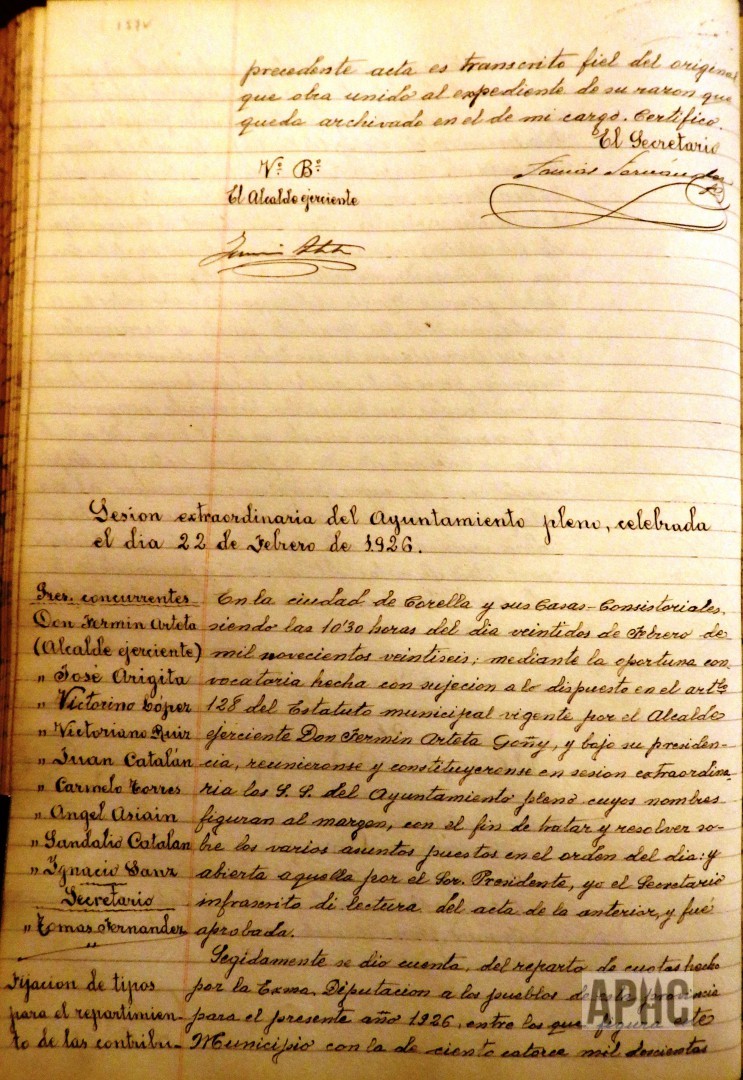 precedente acta es transcrito fiel del original
que obra unido al expediente de su razon que
queda archivado en el de mi cargo. Certifico.
El Secretario
Vº Bº
El Alcalde ejerciente
Tomás Fernández
Sesion extraordinaria del Ayuntamiento pleno, celebrada
el dia 22 de Febrero de 1.926.
Sres. concurrentes
Don Fermin Arteta
(Alcalde ejerciente)
" José Arigita
" Victorino López
" Victoriano Ruiz
" Juan Catalán
" Carmelo Torres
" Angel Asiain
" Sandalio Catalan
" Ygnacio Sanz
Secretario
" Tomas Fernandez
En la ciudad de Corella y sus Casas-Consistoriales,
siendo las 10'30 horas del dia veintidos de Febrero de
mil novecientos veintiseis; mediante la oportuna con-
vocatoria hecha con sujecion a lo dispuesto en el artlo
128 del Estatuto municipal vigente por el Alcalde
ejerciente Don Fermin Arteta Goñy, y bajo su presiden-
cia, reunieronse y constituyeronse en sesion extraordina-
ria los S. S. del Ayuntamiento pleno cuyos nombres
figuran al margen, con el fin de tratar y resolver so-
bre los varios asuntos puestos en el orden del dia: y
abierta aquella por el Sor. Presidente, yo el Secretario
infrascrito di lectura del acta de la anterior, y fué
aprobada.
Fijacion de tipos
para el repartimien-
to de las contribu-
Segidamente se dio cuenta, del reparto de cuotas hecho
por la Exma. Diputacion a los pueblos de esta provincia
para el presente año 1926, entre los que figura este
Municipio con la de ciento catorce mil descientas
APHC